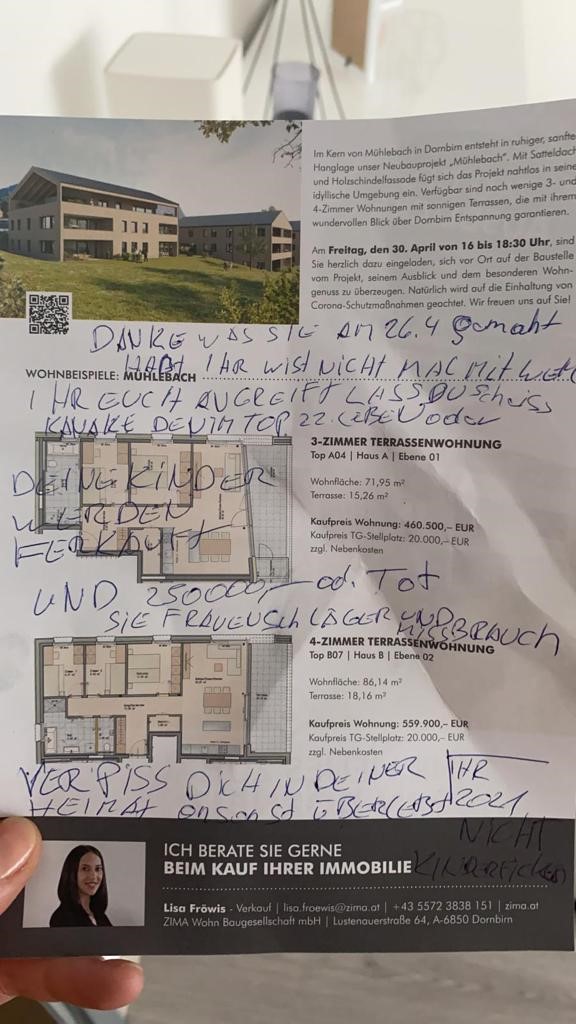 Im Kern von Mühlebach in Dornbirn entsteht in ruhiger, sanfte
Hanglage unser Neubauprojekt „Mühlebach". Mit Satteldach
und Holzschindelfassade fügt sich das Projekt nahtlos in seine
idyllische Umgebung ein. Verfügbar sind noch wenige 3- und
4-Zimmer Wohnungen mit sonnigen Terrassen, die mit ihrem
wundervollen Blick über Dornbirn Entspannung garantieren.
Am Freitag, den 30. April von 16 bis 18:30 Uhr, sind
Sie herzlich dazu eingeladen, sich vor Ort auf der Baustelle
vom Projekt, seinem Ausblick und dem besonderen Wohn-
genuss zu überzeugen. Natürlich wird auf die Einhaltung von
Corona-Schutzmaßnahmen geachtet. Wir freuen uns auf Sie!
DANKE WAS SIE AM 26.4 gemaht
HABT IHR WIST NICHT MAL MIT
WOHNBEISPIELE: MÜHLEBACH
IHR EUCH ANGREIFT LASS DU Scheiss
KANAKE DEN IM TOP 22. LEBEN oder
3-ZIMMER TERRASSENWOHNUNG
Top A04 | Haus A | Ebene 01
Wohnfläche: 71,95 m²
Terrasse: 15,26 m²
Kaufpreis Wohnung: 460.500,– EUR
Kaufpreis TG-Stellplatz: 20.000,– EUR
zzgl. Nebenkosten
DEINE KINDER
WERDEN
FERKAUFT
UND 250000,– od. Tot
SIE FRAUENSCHLÄGER UND
MISSBRAUCH
4-ZIMMER TERRASSENWOHNUNG
Top B07 | Haus B | Ebene 02
Wohnfläche: 86,14 m²
Terrasse: 18,16 m²
Kaufpreis Wohnung: 559.900,– EUR
Kaufpreis TG-Stellplatz: 20.000,– EUR
zzgl. Nebenkosten
VERPISS DICH IN DEINER IHR
HEIMAT ansonst ÜBERLEBST 2021
NICHT
KINDERFICKER
ICH BERATE SIE GERNE
BEIM KAUF IHRER IMMOBILIE
Lisa Fröwis - Verkauf | lisa.froewis@zima.at | +43 5572 3838 151 | zima.at
ZIMA Wohn Baugesellschaft mbH | Lustenauerstraße 64, A-6850 Dornbirn